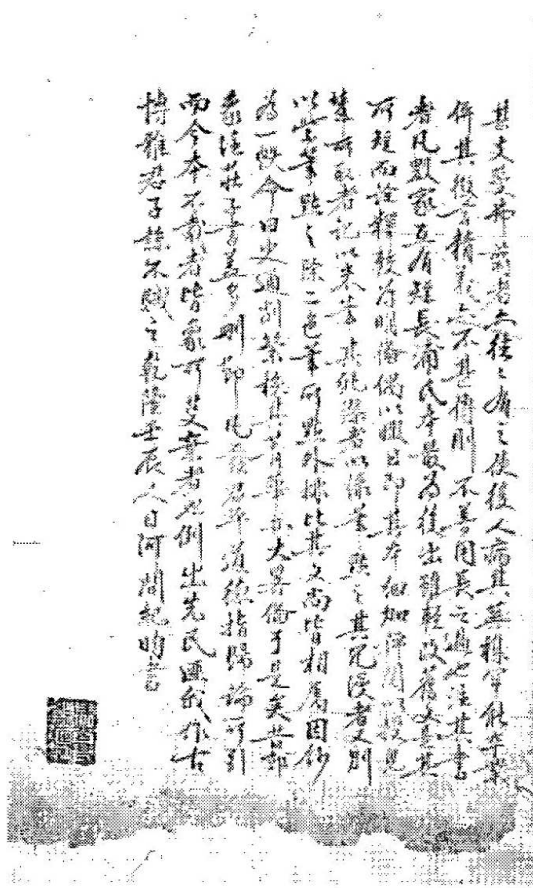 其支蔓弗翦者亦往往有之使後人病其蕪雜罕能卒業
併其微言精義亦不甚傳則不善用長之過也注其書
者凡數家互有短長浦氏本最為後出雖輕改舊文是其
所短而詮釋較為明備偶以暇日即其本細加評閱以授兒
輩所取者記以朱筆其紕繆者以綠筆點之其冗漫者又別
以紫筆點之除二色筆所點外排比其文尚皆相屬因鈔
為一帙命曰史通削繁核其菁華亦大畧備于是矣昔郭
象注莊子書蓋多刪節凡嚴君平道德指歸論所引
而今本不載者皆象所芟棄者也例出先民匪我作古
博雅君子諒不駭之乾隆壬辰人日河間紀昀書